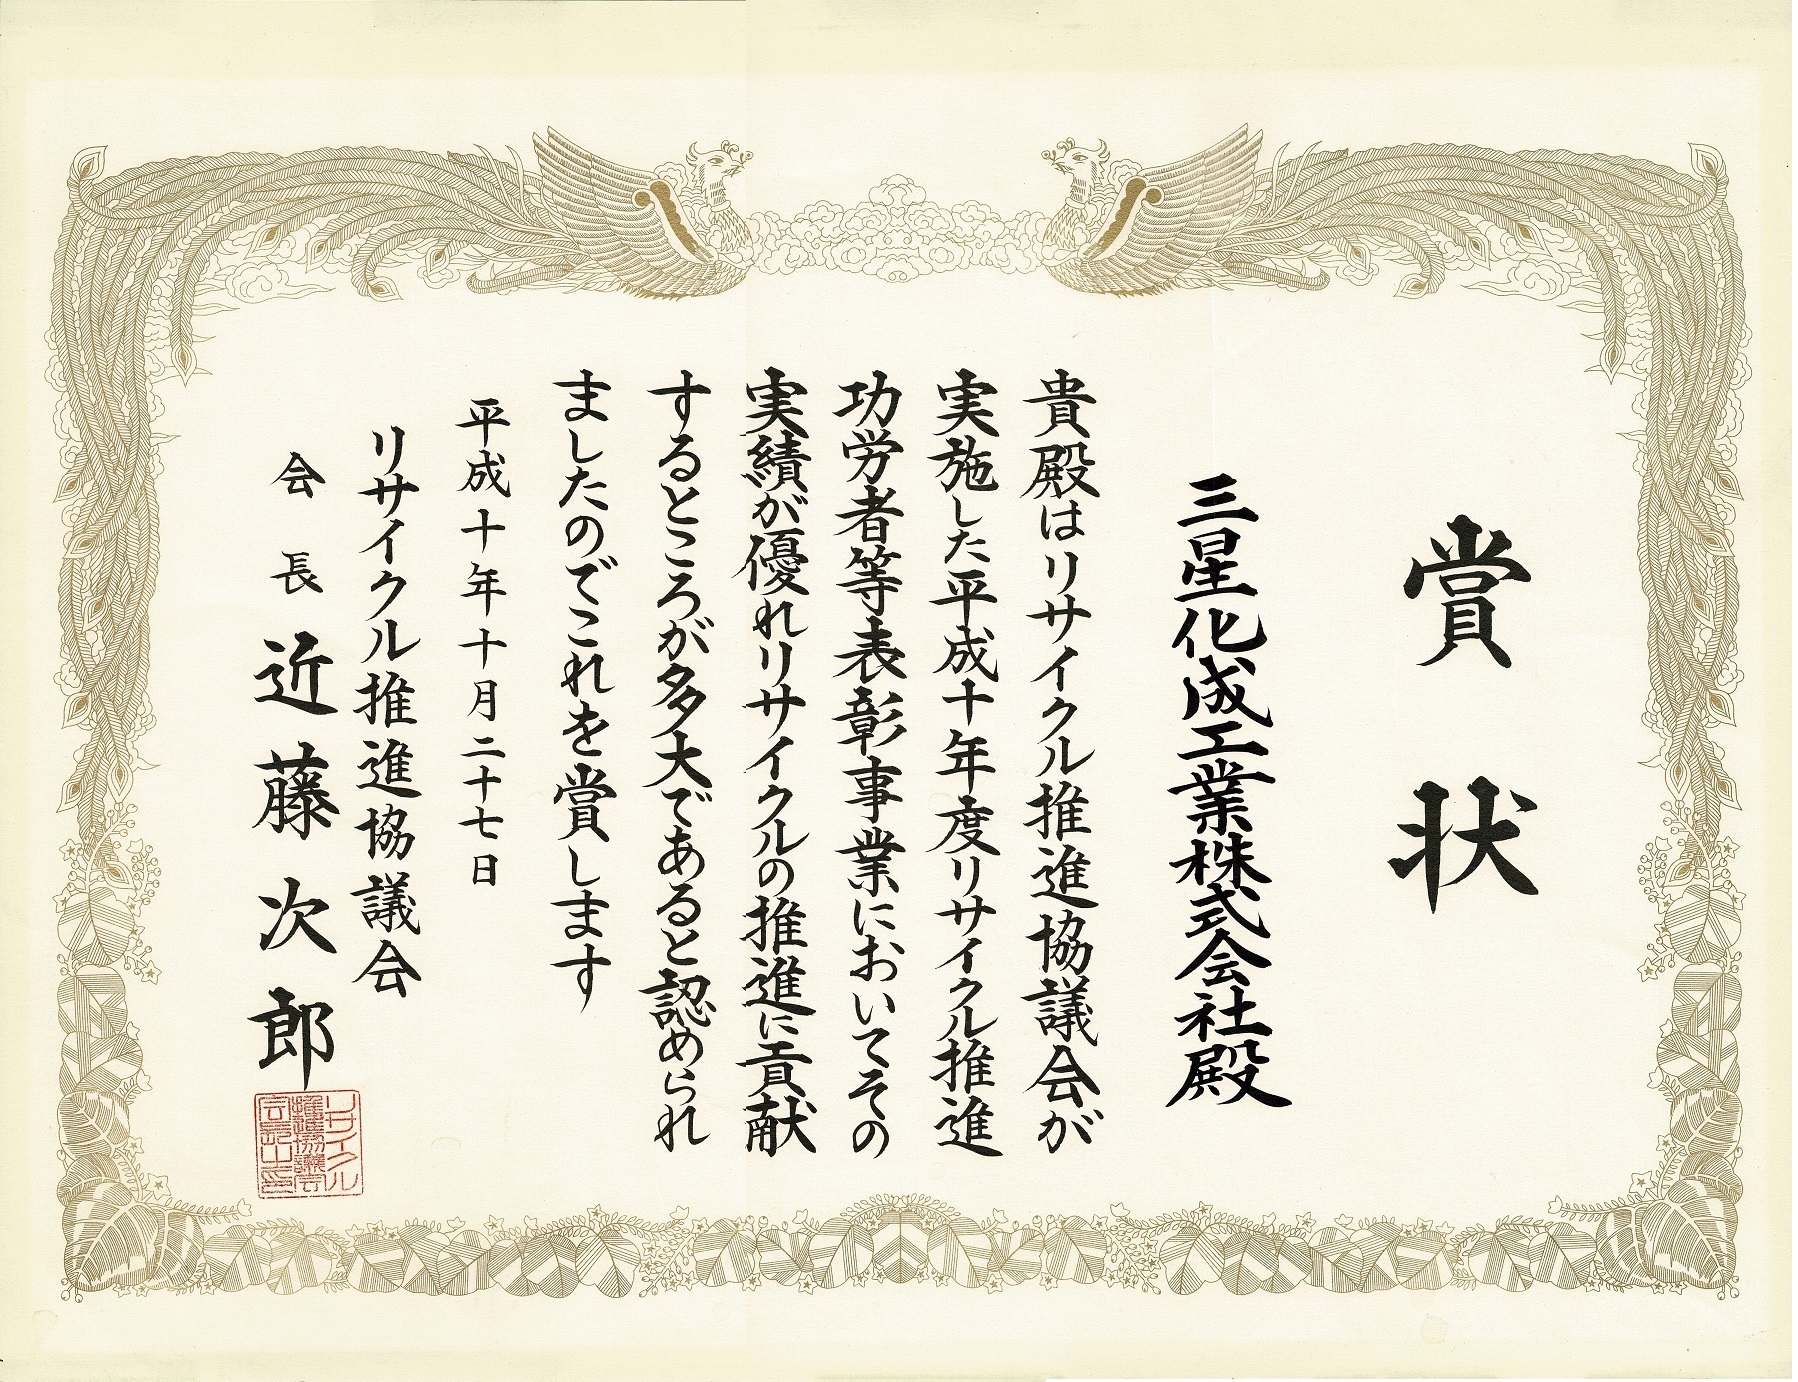 賞状
三星化成工業株式会社殿
貴殿はリサイクル推進協議会が
実施した平成十年度リサイクル推進
功労者等表彰事業においてその
実績が優れリサイクルの推進に貢献
するところが多大であると認められ
ましたのでこれを賞します
平成十年十月二十七日
リサイクル推進協議会
会長 近藤次郎
リサイクル
推進協議会